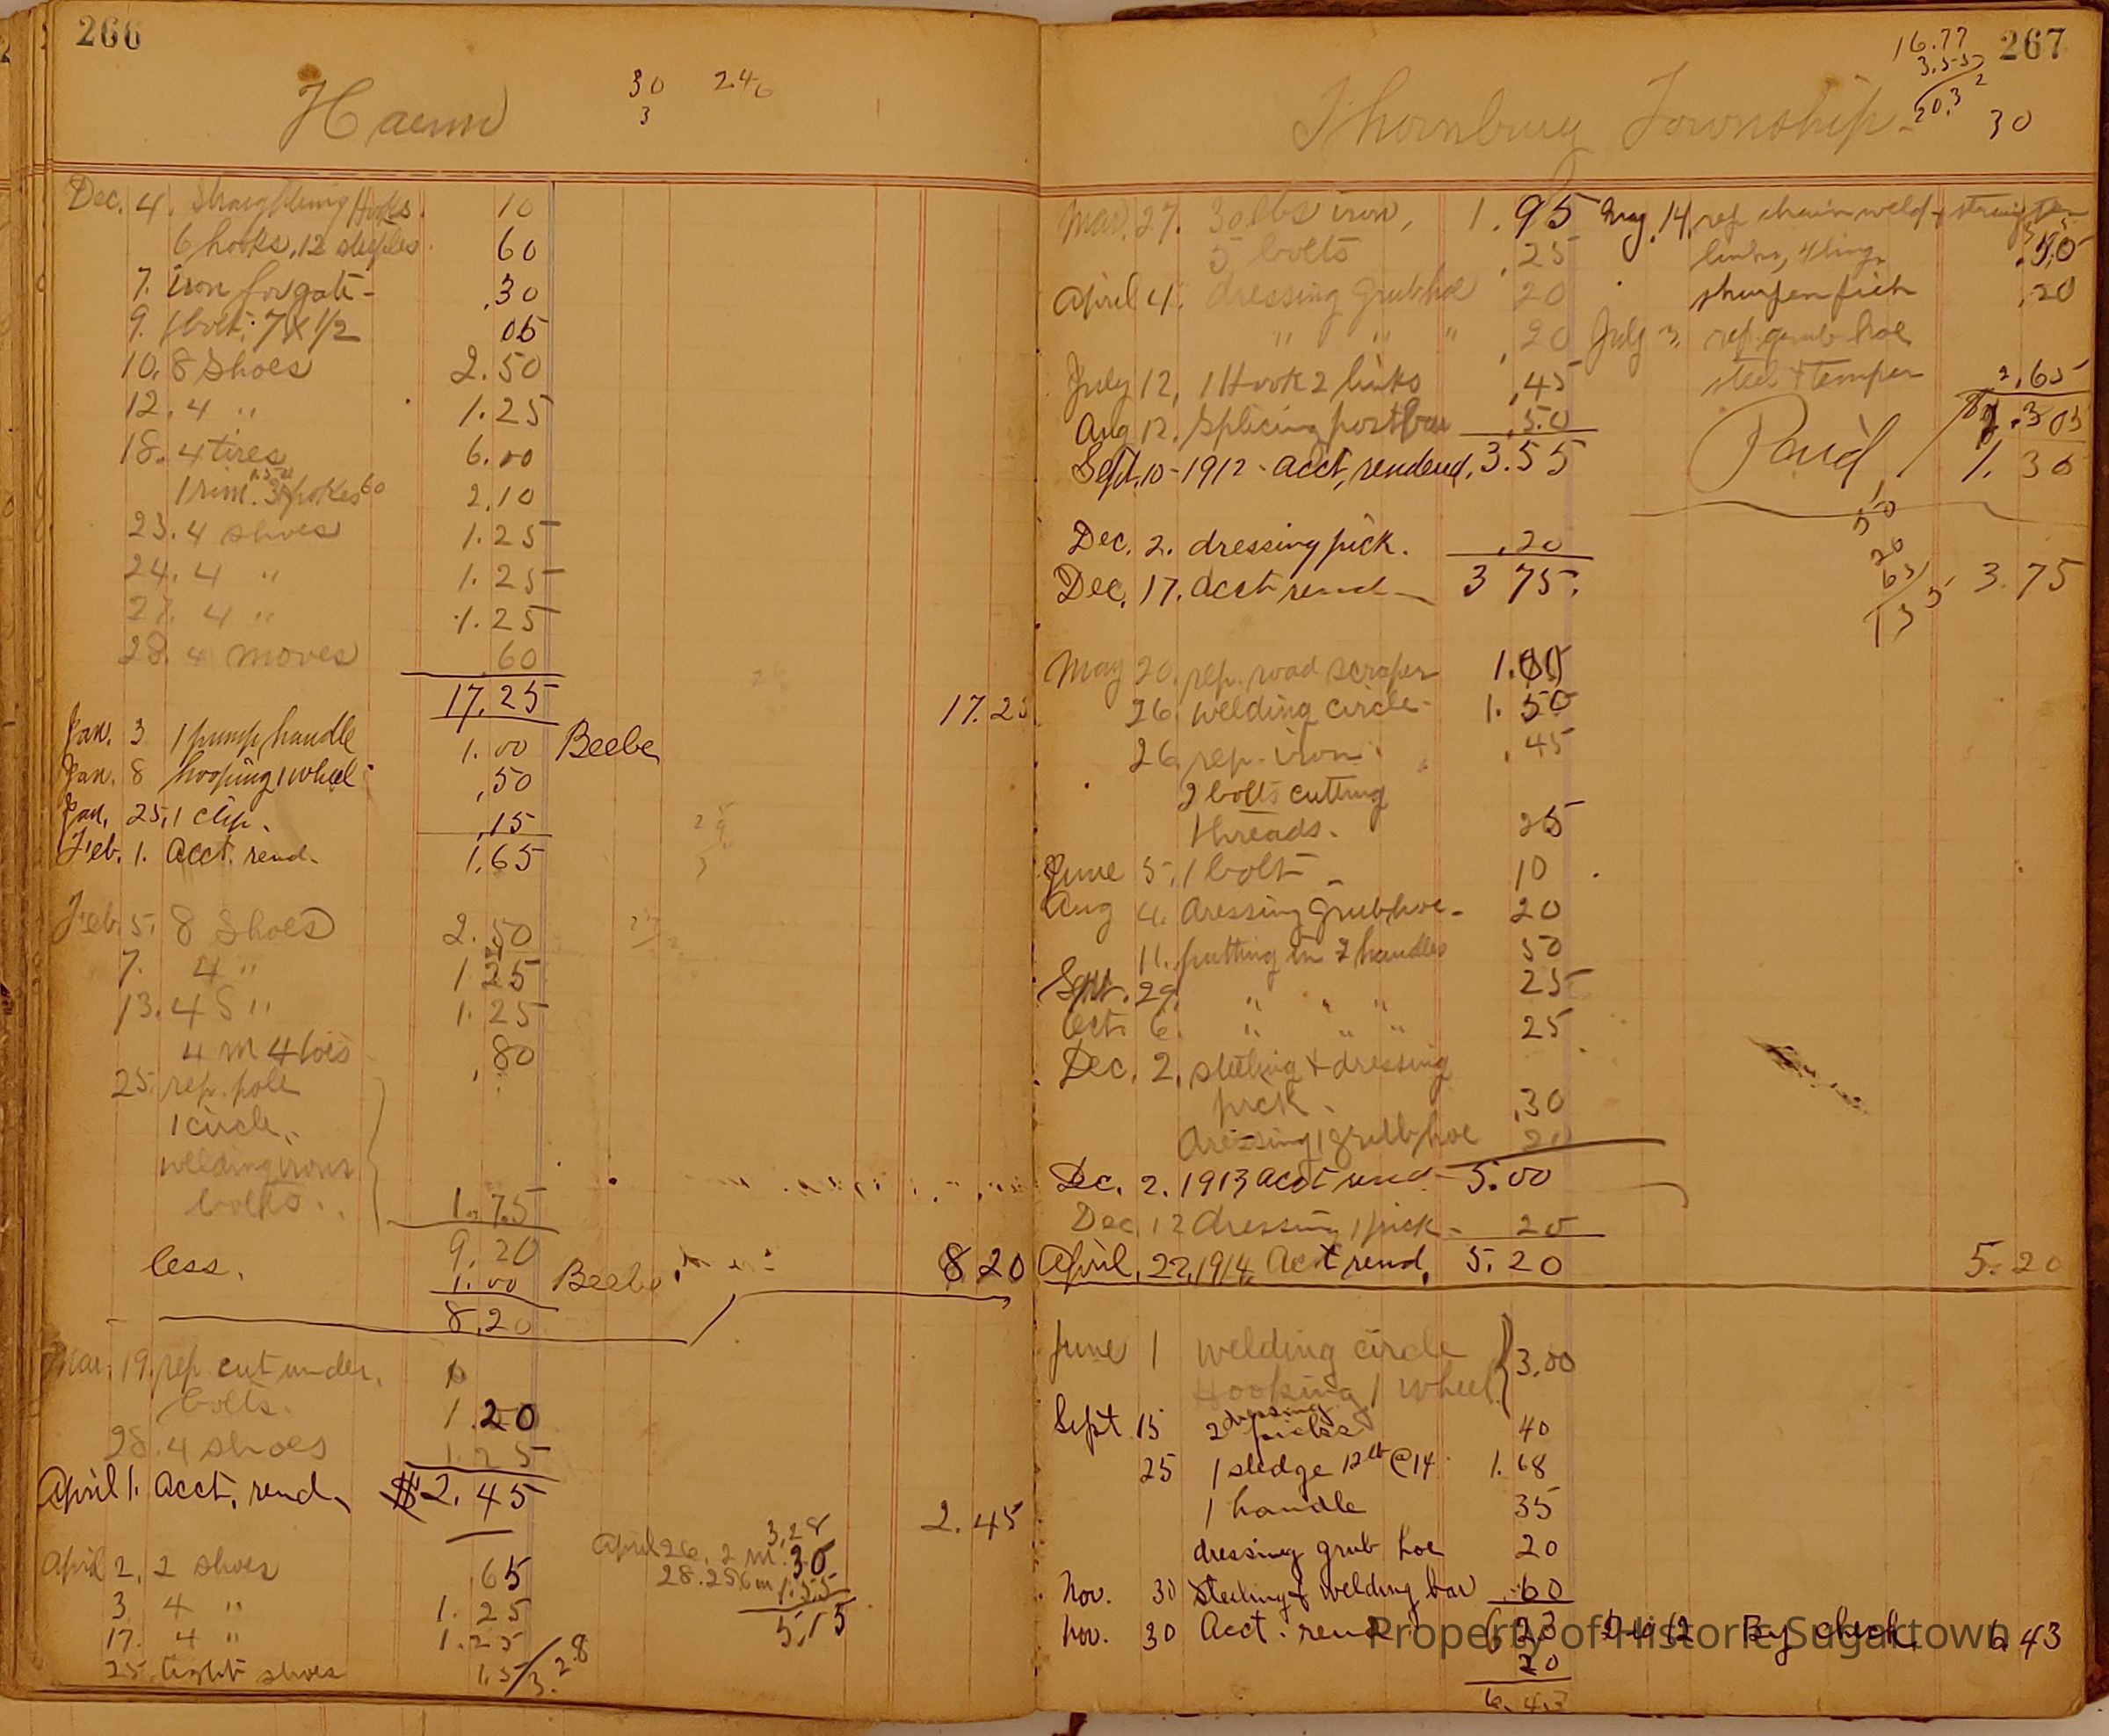 266
Haenn
30 2.46
3
Dec. 4. Straightening Hooks. 10
6 hooks, 12 steples. 60
7. iron for gate - .30
9. 1 bolt. 7 x 1/2 05
10. 8 Shoes 2.50
12. 4 " 1.25
18. 4 tires 6.00
1 rim. 1.50 3 spokes 60 2.10
23. 4 shoes 1.25
24. 4 " 1.25
27. 4 " 1.25
28. 4 moves 60
17.25 17.25
Jan. 3 1 pump handle 1.00 Beebe
Jan. 8 hooping 1 wheel .50
Jan. 25, 1 clip. .15
Feb. 1. Acct. rend. 1.65
Feb. 5. 8 Shoes 2.50
7. 4 " 1.25
13. 4 S " 1.25
4 m 4 tois .80
25. rep. pole
1 circle,
welding irons
bolts. 1.75
9.20
less. 1.00 Beebe 8 20
8.20
Mar. 19. rep cut under,
bolts. 1.20
28. 4 shoes 1.25
April 1. Acct. rend. $2.45 2.45
April 2. 2 shoes .65
3 4 " 1.25
17. 4 " 1.25
25 tight shoes 1.5 / 3.28
3.28
April 26. 2 m. 30
28.
5.15
267
16.77
3.55
20.32
30
Thornbury Township
Mar. 27. 30 lbs iron, 1.95
5 bolts .25
April 4. dressing Grubhoe 20
" " " .20
July 12, 1 Hook 2 links .45
Aug 12. Splicing post bar .50
Sept. 10 - 1912 - acct, rendered, 3.55
Dec. 2. dressing pick. .20
Dec. 17. acct rend 3 75.
14. rep chain weld + straighten
links, 4 ling
sharpen pick .20
July 3, rep. grub hoe
steel + temper 2.65
Paid 1.35
50
20
65
135
3.75
May 20. rep. road scraper 1.00
26. welding circle - 1.50
26. rep. iron. .45
2 bolts cutting
threads. 25
June 5, 1 bolt 10
Aug 4. dressing Grubhoe - 20
11. putting in 2 handles 50
Sept. 29. " " " 25
Oct. 6. " " " 25
Dec. 2. steeling + dressing
pick. .30
dressing 1 grubhoe 20
Dec. 2. 1913 acct rend 5.00
Dec. 12 dressing 1 pick - 20
April, 22, 1914 Acct rend, 5.20 5.20
June 1 welding circle
Hooping 1 wheel } 3.00
Sept 15 2 dressing picks 40
25 1 sledge 12 lb @ 14 1.68
1 handle 35
dressing grub hoe 20
Nov. 30 Steeling & welding bar .60
Nov. 30 Acct. rend 6 23 Dec 12 By check 6.43
20
6.43
Property of Historic Sugartown